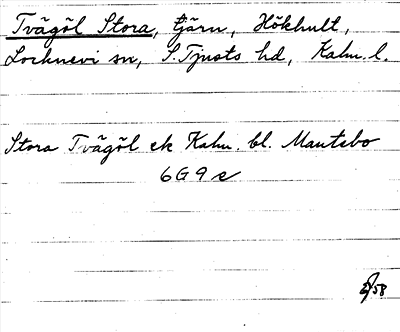 Tvägöl Stora, tjärn, Hökhult,
Locknevi sn, S. Tjusts hd, Kalm. l.
Stora Tvägöl ek Kalm. bl. Mantebo
6G9e
58